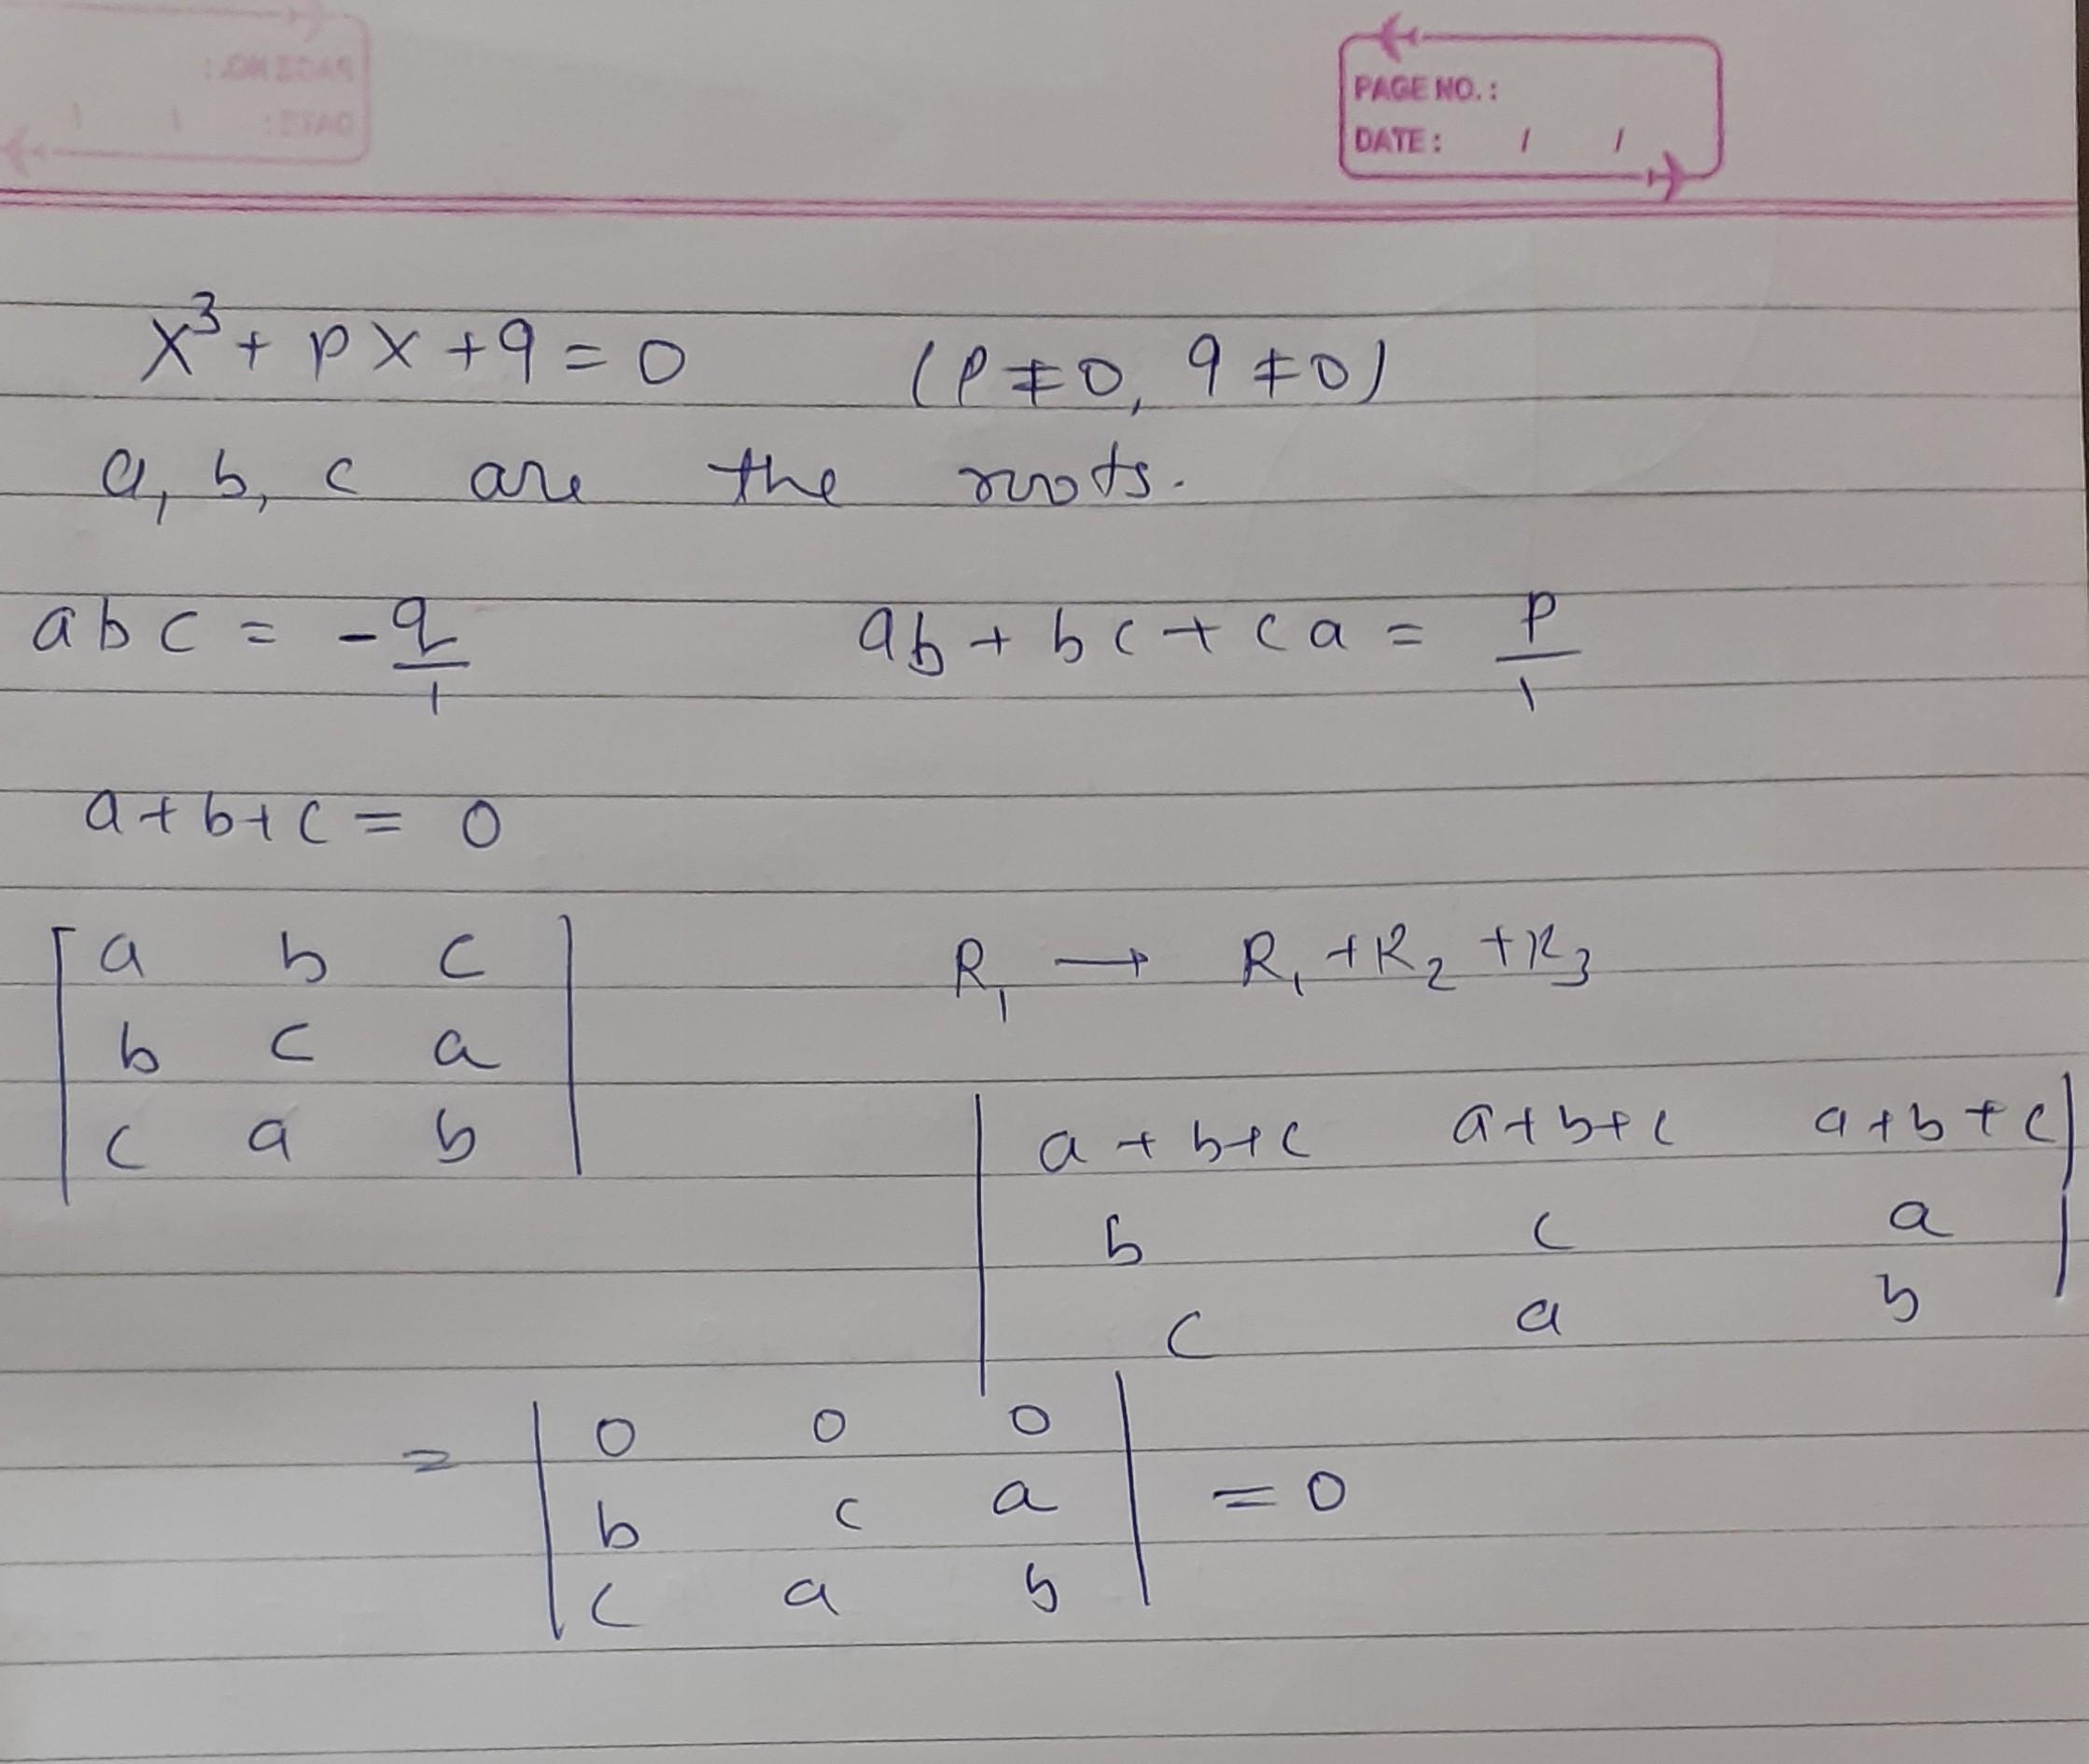 PAGE NO.:
DATE: / /
x³ + px + q = 0 (p ≠ 0, q ≠ 0)
a, b, c are the roots.
abc = -q/1 ab + bc + ca = p/1
a + b + c = 0
| a b c | R₁ → R₁ + R₂ + R₃
| b c a |
| c a b |
| a + b + c a + b + c a + b + c |
| b c a |
| c a b |
= | 0 0 0 |
| b c a | = 0
| c a b |